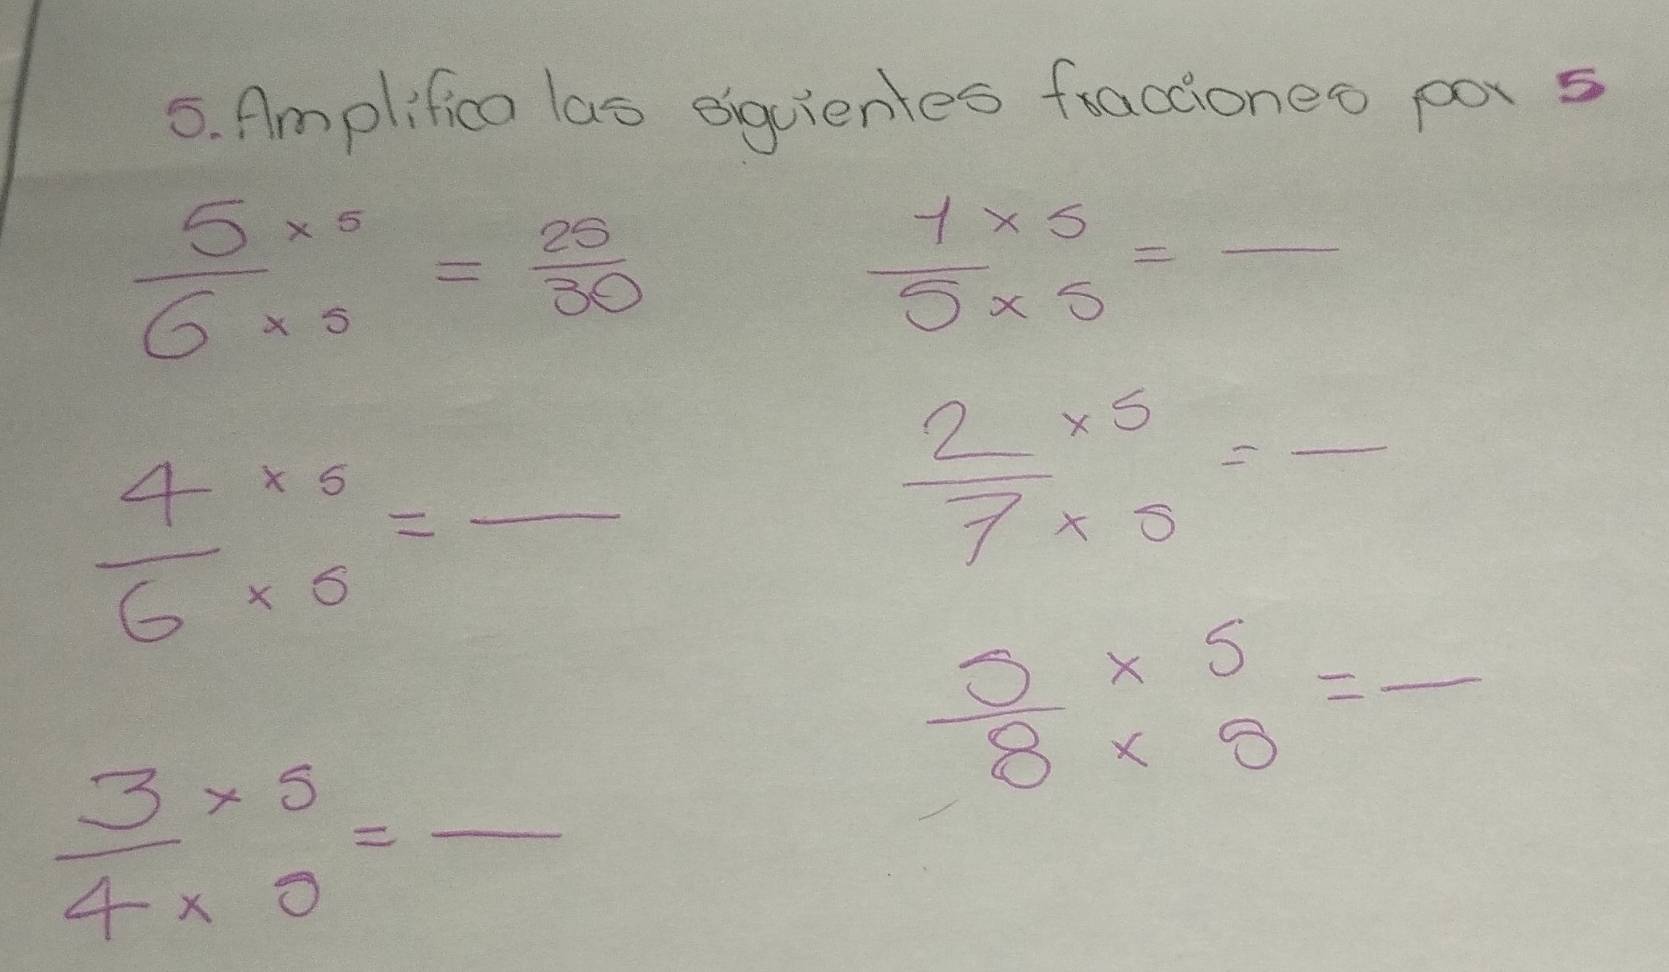 5. Amplifica las siguientes fracciones por 5
5 × 5 / 6 × 5 = 25 / 30
1 × 5 / 5 × 5 = —
4 × 5 / 6 × 5 = —
2 × 5 / 7 × 5 = —
5 × 5 / 8 × 5 = —
3 × 5 / 4 × 5 = —